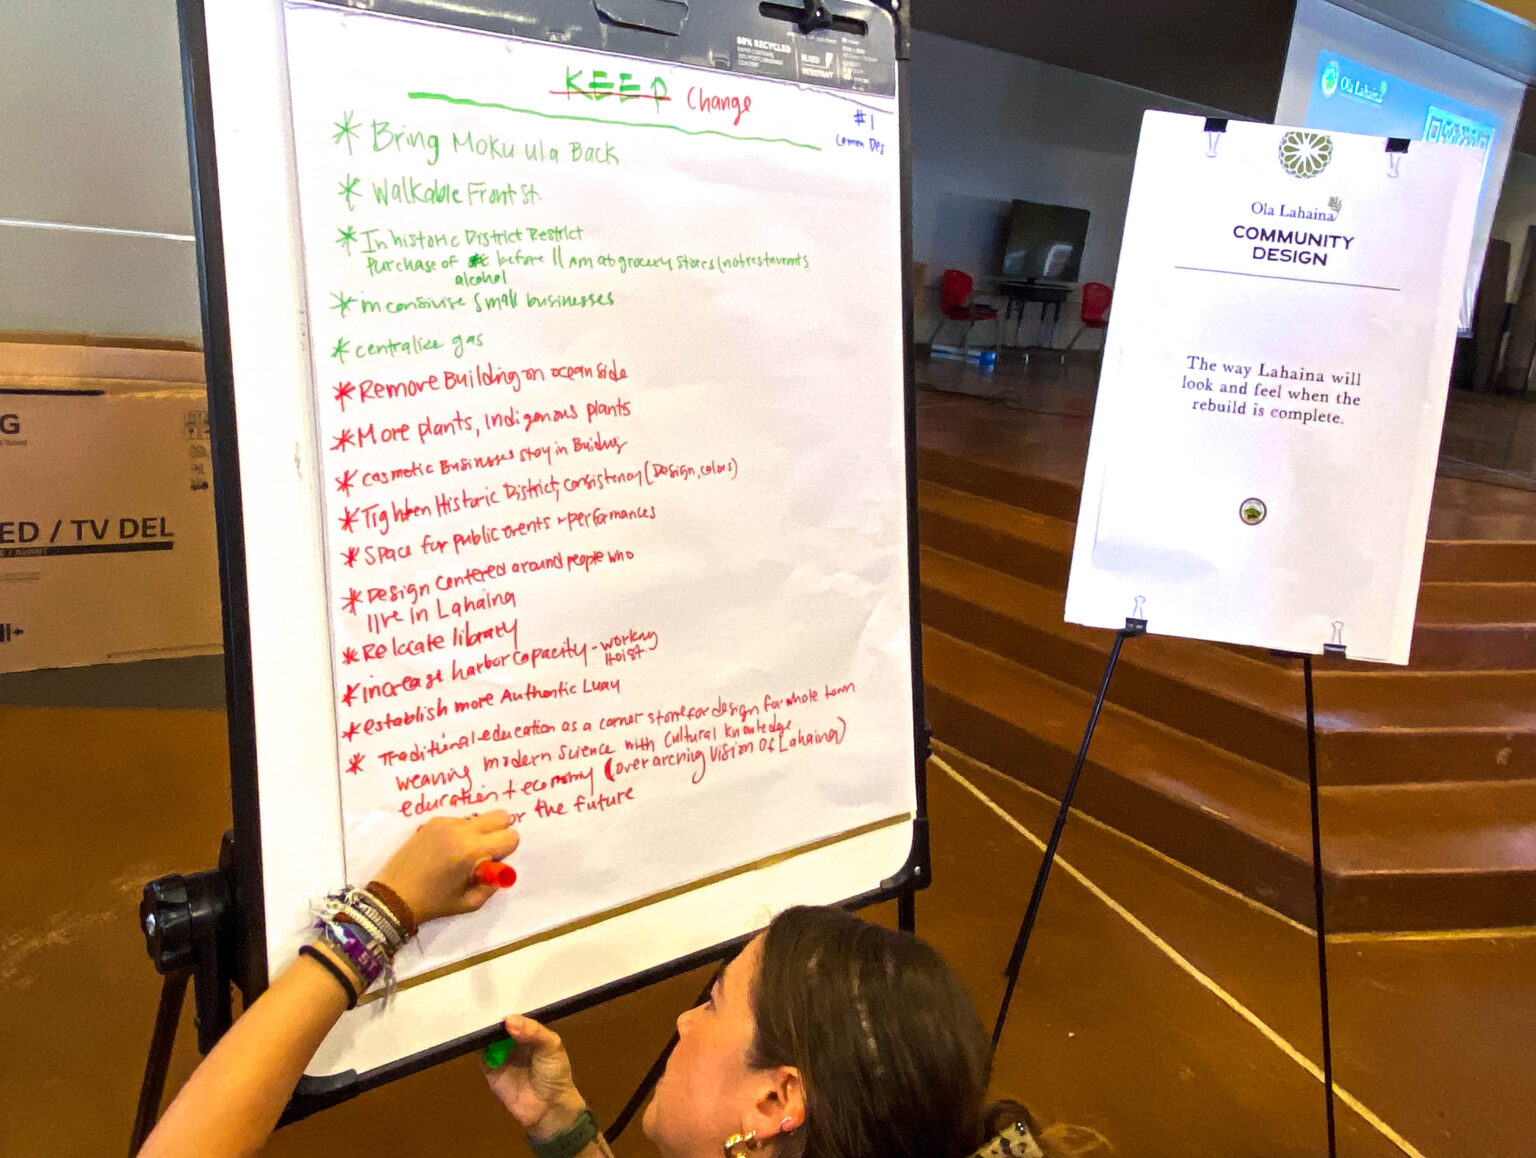 80% RECYCLED
BLEED
RESISTANT
KEEP Change
#1
Comm Des
* Bring Moku ula Back
* Walkable Front St.
* In historic District Restrict
Purchase of before 11 am at grocery stores (not restaurants
alcohol
* small businesses
* centralize gas
* Remove Building on ocean side
* More plants, Indigenous plants
* Cosmetic Businesses stay in
* Tighten Historic District, consistency (Design, colors)
* Space for public events + performances
* Design Centered around people who
live in Lahaina
* Relocate library
* increase harbor capacity - working
Hoist
* establish more Authentic Luau
* Traditional education as a corner stone for design for whole town
weaving modern science with cultural knowledge
education + economy (over arching vision of Lahaina)
the future
Ola Lahaina
COMMUNITY
DESIGN
The way Lahaina will
look and feel when the
rebuild is complete.
Ola Lahaina
G
ED / TV DEL